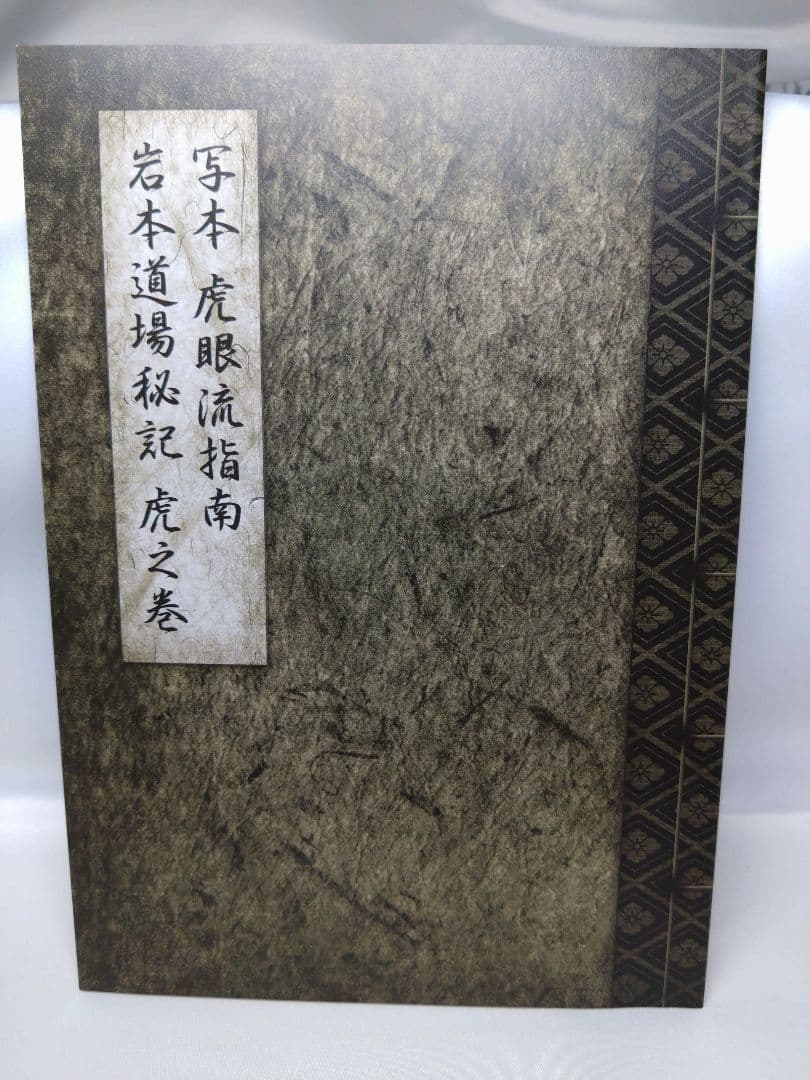 写本 虎眼流指南
岩本道場秘記 虎之巻